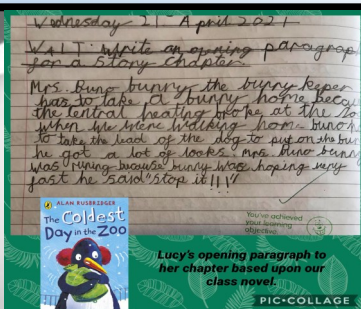 Wednesday 21 April 2021
WALT: Write an opening paragrap
for a story chapter.
Mrs. Buno bunny the bunny keper
has to take a bunny home beca
the lentral heating broke at the zo
when we were walking hom- buno h
to take the lead of the dog to put on the bun
he got a lot of looks. mrs. buno bunny
was runing because bunny was hoping very
fast he said "stop it!!!
You've achieved
your learning
objective
ALAN RUSBRIDGER
The Coldest
Day in the ZOO
Lucy's opening paragraph to
her chapter based upon our
class novel.
PIC•COLLAGE